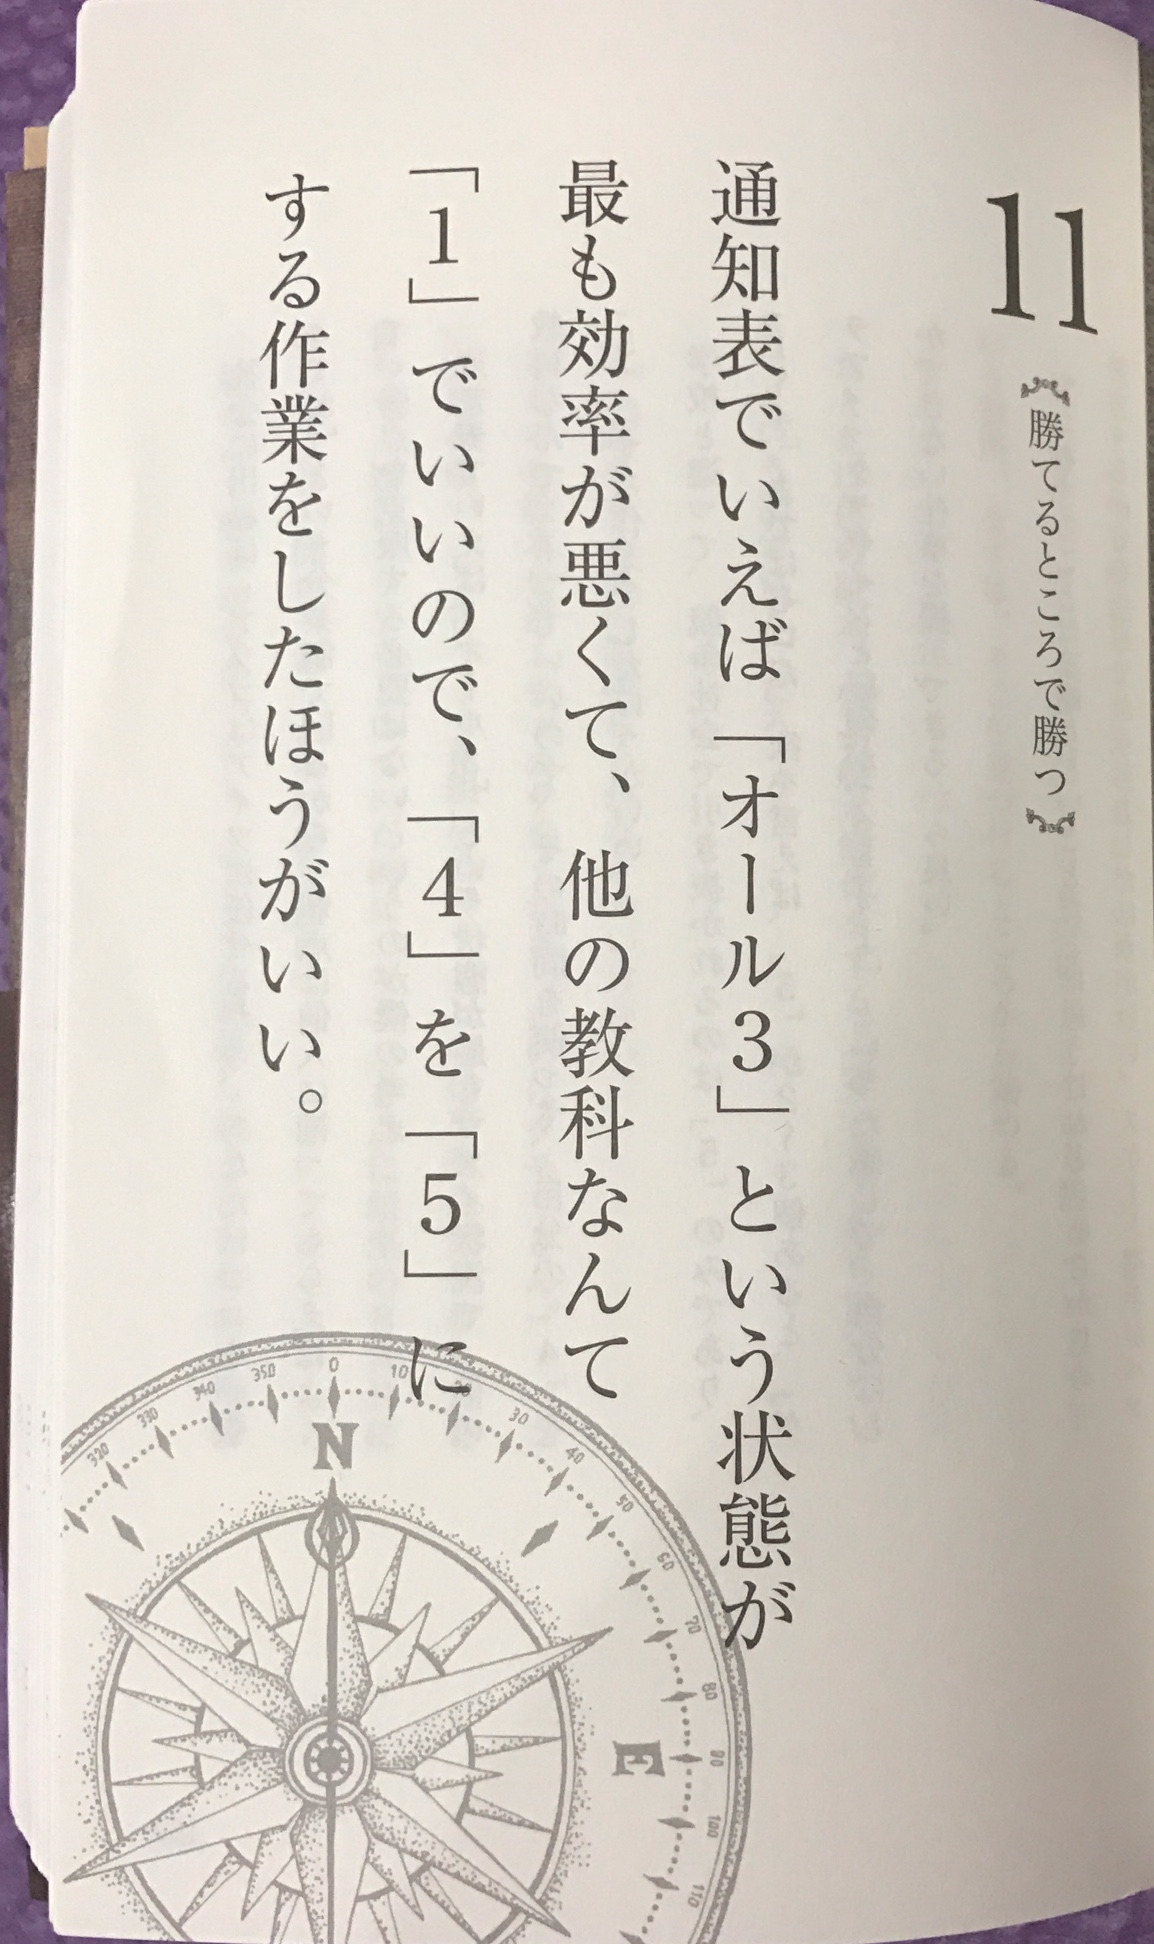 11
勝てるところで勝つ
通知表でいえば「オール3」という状態が
最も効率が悪くて、他の教科なんて
「1」でいいので、「4」を「5」に
する作業をしたほうがいい。
320
330
340
350
0
10
20
30
40
50
60
70
80
90
100
110
N
E